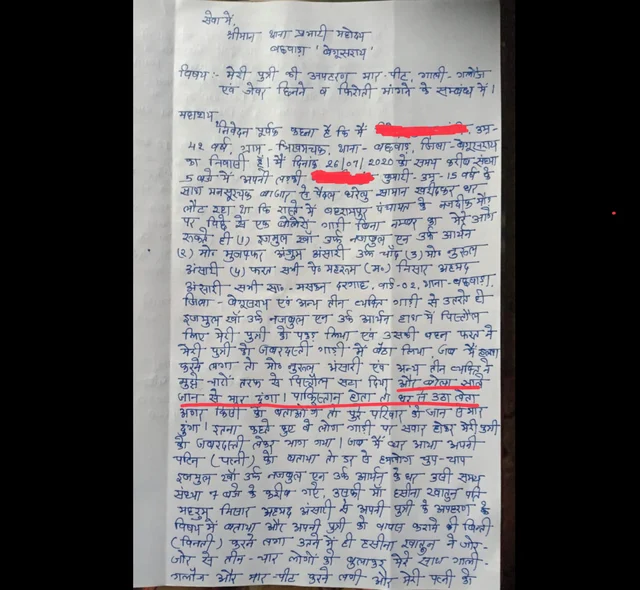 सेवा में,
श्रीमान थाना प्रभारी महोदय
बछवाड़ा 'बेगूसराय'
विषय:- मेरी पुत्री की अपहरण मार-पीट, गाली-गलौज
एवं जेवर छिनने व फिरौती मांगने के सम्बन्ध में।
महाशय,
निवेदन पूर्वक कहना है कि मैं उम्र-
42 वर्ष, ग्राम- भिखमचक, थाना- बछवाड़ा, जिला- बेगूसराय
का निवासी हूँ। मैं दिनांक 26/07/2020 को समय करीब संध्या
5 बजे में अपनी लड़की कुमारी उम्र- 15 वर्ष के
साथ मनसूरचक बाजार से पैदल घरेलु सामान खरीदकर घर
लौट रहा था कि रास्ते में बहरामपुर पंचायत के नजदीक मोड़
पर पिछे से एक बोलेरो गाड़ी बिना नम्बर का मेरे आगे
रूकते ही (1) इजमुल खाँ उर्फ नजकुल एन उर्फ आर्यन
(2) मो० मुजफ्फर अंगुम अंसारी उर्फ चाँद (3) मो० नुरूल
अंसारी (4) फरत सभी पे० महरूम (म०) निसार अहमद
अंसारी सभी सा०- मसऊन दरगाह, वार्ड-02, थाना- बछवाड़ा,
जिला- बेगूसराय एवं अन्य तीन व्यक्ति गाड़ी से उतरते ही
इजमुल खाँ उर्फ नजकुल एन उर्फ आर्यन हाथ में पिस्तौल
लिए मेरी पुत्री को पकड़ लिया एवं उसकी बहन फरत ने
मेरी पुत्री को जबरदस्ती गाड़ी में बैठा लिया, जब मैं हल्ला
करने लगा तो मो० नुरूल अंसारी एवं अन्य तीन व्यक्ति ने
मुझे चारो तरफ से पिस्तौल सटा दिया और बोला साले
जान से मार दुंगा। पाकिस्तान होता तो घर से उठा लेता
अगर किसी को बताओगे तो पुरे परिवार को जान से मार
दुंगा। इतना कहते हुए वे लोग गाड़ी पर सवार होकर मेरी पुत्री
को जबरदस्ती लेकर भाग गया। जब मैं घर आया अपनी
पत्नि (पत्नी) को बताया तो डर से हमलोग चुप-चाप
इजमुल खाँ उर्फ नजकुल एन उर्फ आर्यन के घर उसी समय
संध्या 7 बजे के करीब गए, उसकी माँ हसीना खातुन पति
महरूम निसार अहमद अंसारी से अपनी पुत्री के अपहरण के
विषय में बताया और अपनी पुत्री को वापस कराने की विनती
(विनती) करने लगा इतने में ही हसीना खातुन ने जोर-
जोर से तीन-चार लोगो को बुलाकर मेरे साथ गाली-
गलौज और मार-पीट करने लगी और मेरी पत्नी को